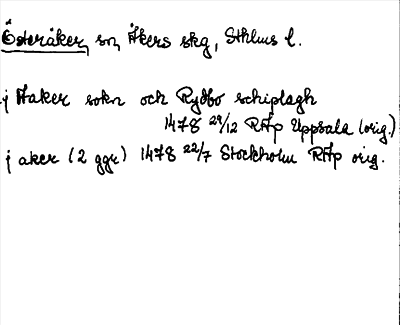 Österåker, sn, Åkers skg, Sthlms l.
j Haker sokn och Rydbo schiplagh
1478 29/12 RAp Uppsala (orig.)
j aker (2 ggr) 1478 22/7 Stockholm RAp orig.